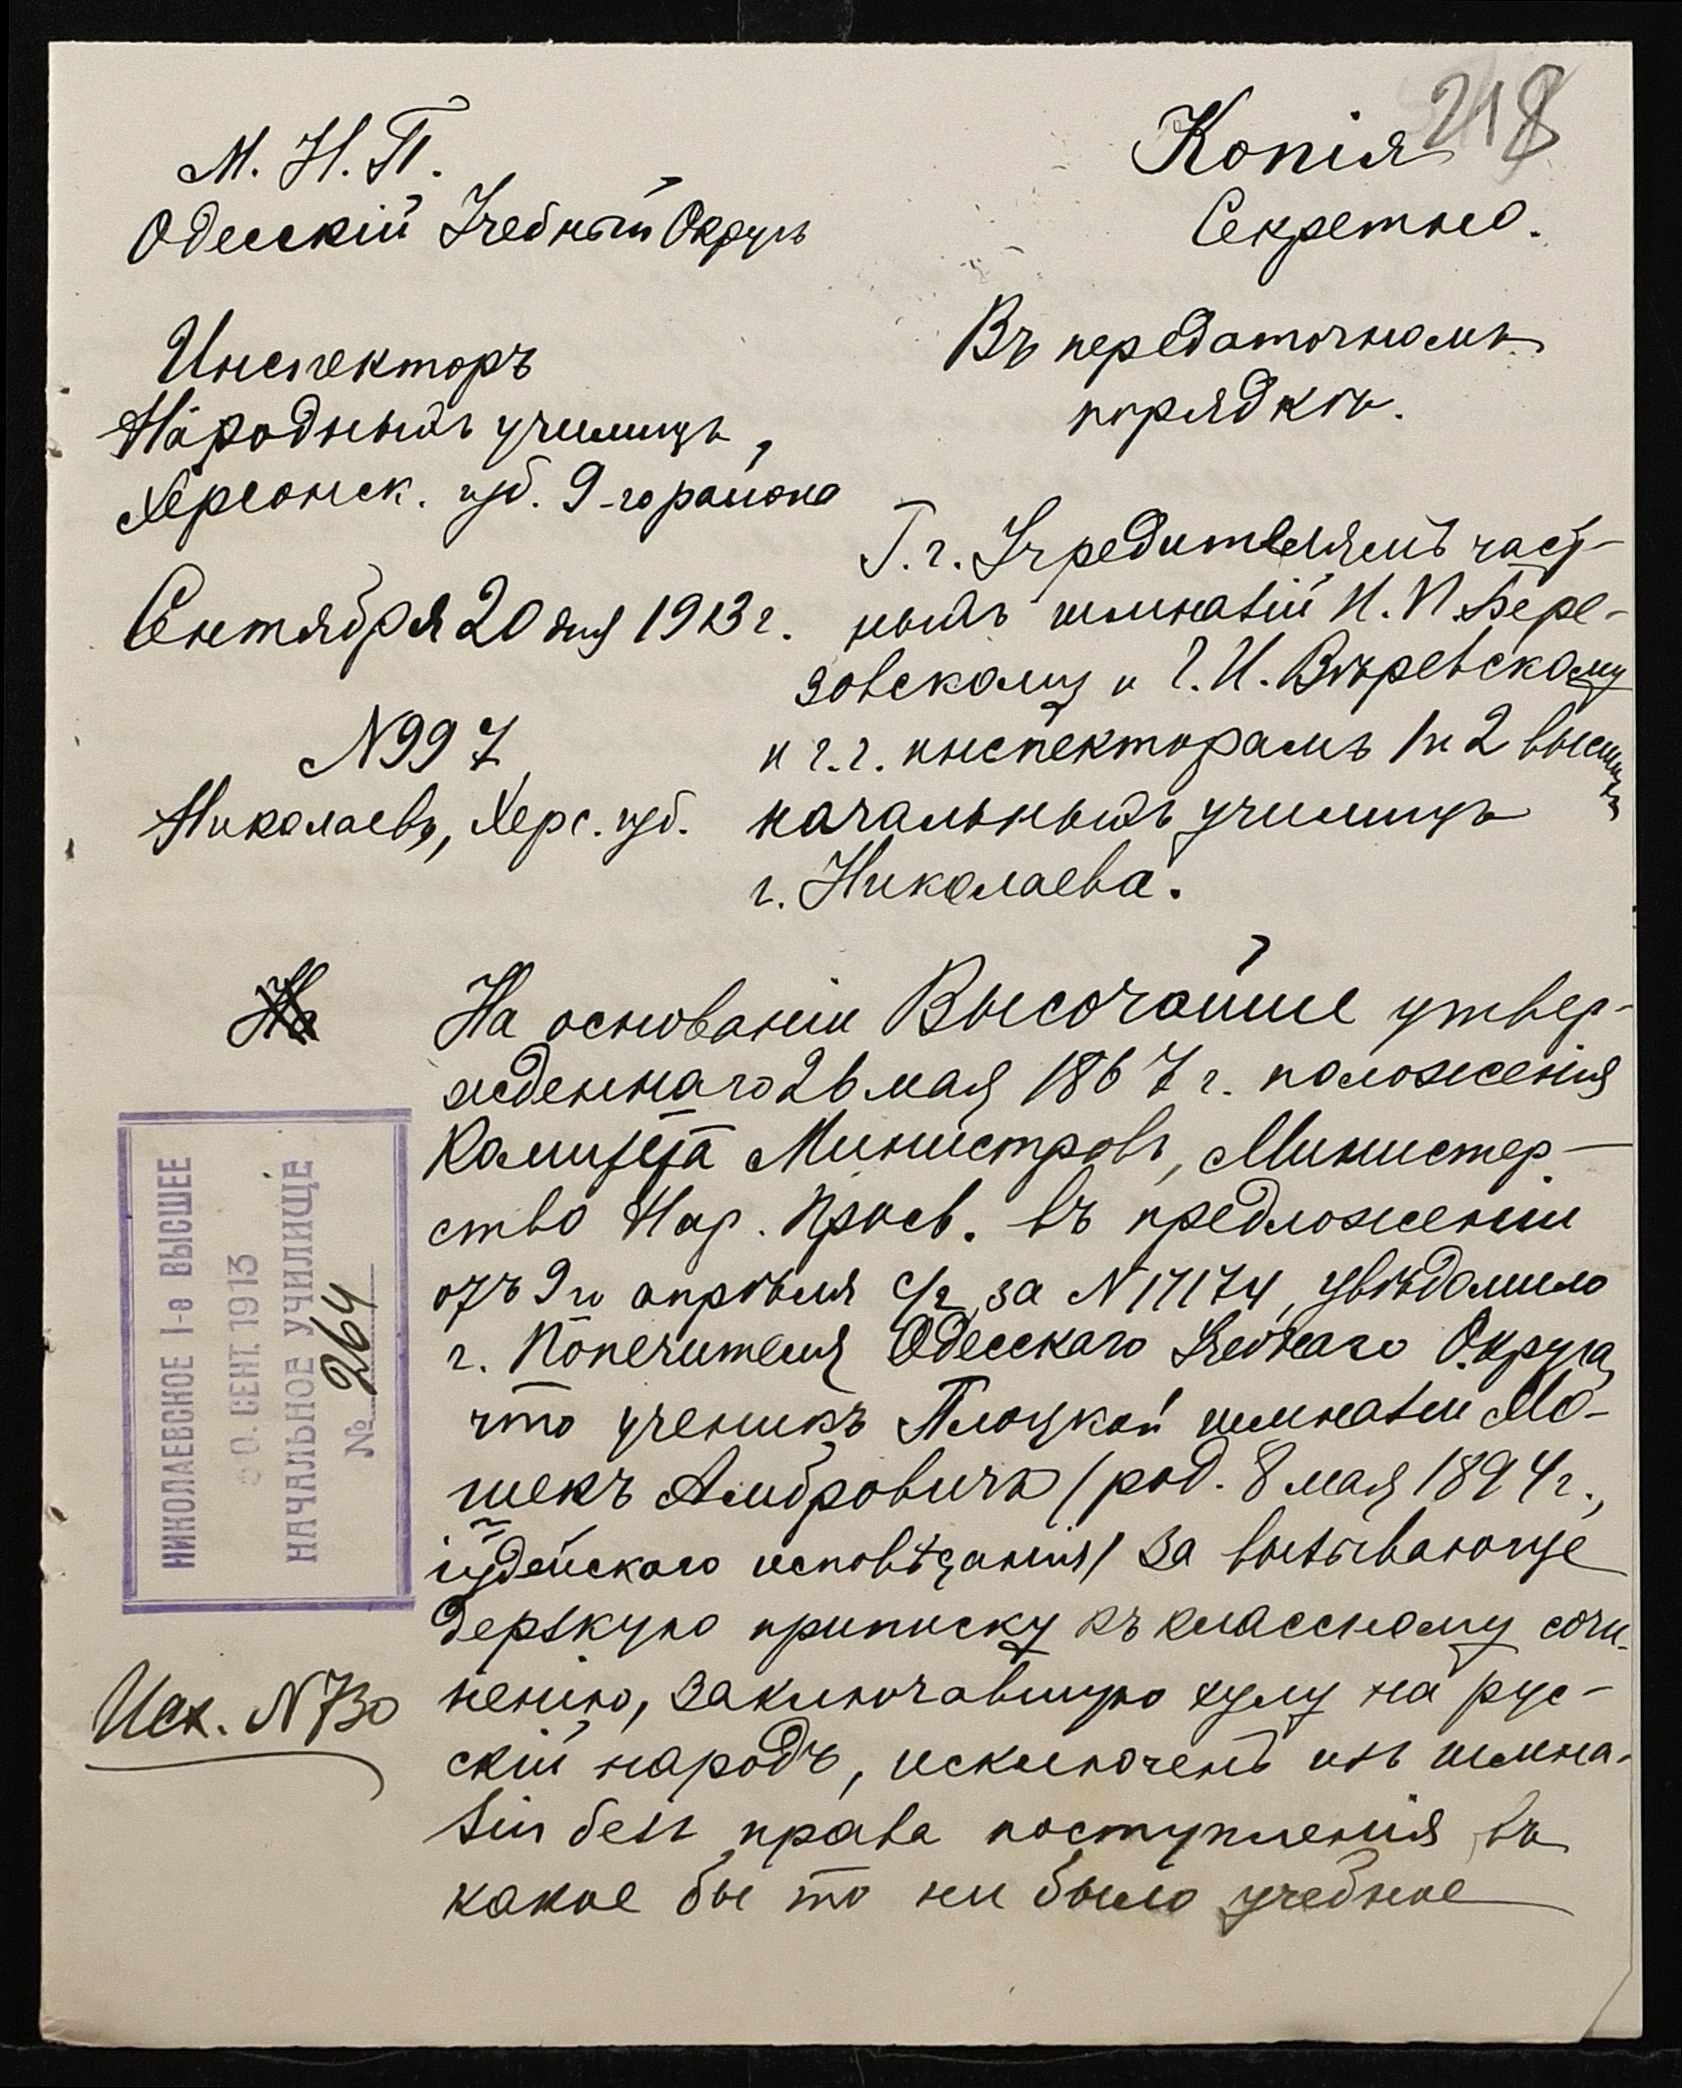 218
М. Н. П.
Одесскій Учебный Округъ
Инспекторъ
Народныхъ училищъ,
Херсонск. губ. 9-го района
Сентября 20 дня 1913 г.
N 997
Николаевъ, Херс. губ.
Копія
Секретно.
Въ передаточномъ
порядкѣ.
Г.г. Учредителямъ част-
ныхъ гимназій И. П. Бере-
зовскому и Г. И. Вѣревскому
и г.г. инспекторамъ 1 и 2 высшихъ
начальныхъ училищъ
г. Николаева.
На
На основаніи Высочайше утвер-
жденнаго 26 мая 1867 г. положенія
Комитета Министровъ, Министер-
ство Нар. Просв. въ предложеніи
отъ 9го апрѣля с/г за N 17174, увѣдомило
г. Попечителя Одесскаго Учебнаго Округа,
что ученикъ Плоцкой гимназіи Мо-
шекъ Амбровичъ (род. 8 мая 1894 г.,
іудейскаго исповѣданія) за вызывающе
дерзкую приписку къ классному сочи-
ненію, заключавшую хулу на рус-
скій народъ, исключенъ изъ гимна-
зіи безъ права поступленія въ
какое бы то ни было учебное
НИКОЛАЕВСКОЕ 1-е ВЫСШЕЕ
20. СЕНТ. 1913
НАЧАЛЬНОЕ УЧИЛИЩЕ
№ 264
Исх. N 730